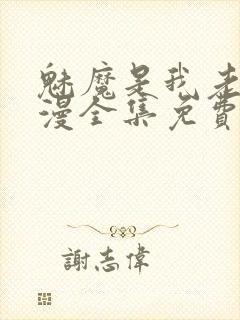 魅魔是我老
漫全集免費
謝志偉